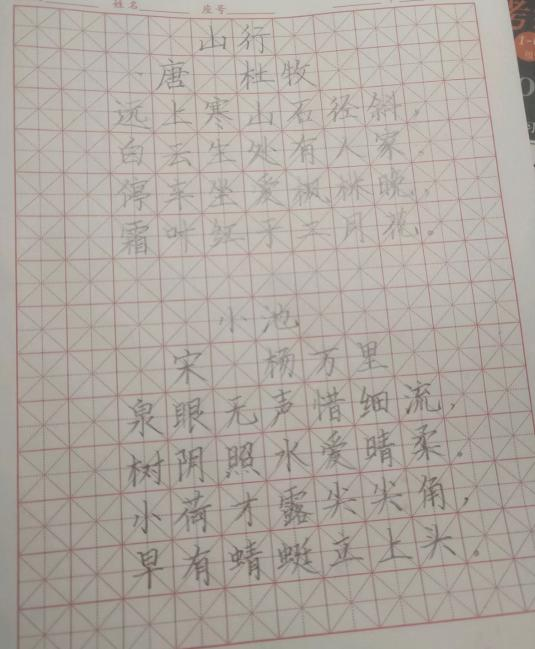 姓名 座号
山行
唐 杜牧
远上寒山石径斜，
白云生处有人家。
停车坐爱枫林晚，
霜叶红于二月花。
小池
宋 杨万里
泉眼无声惜细流，
树阴照水爱晴柔。
小荷才露尖尖角，
早有蜻蜓立上头。